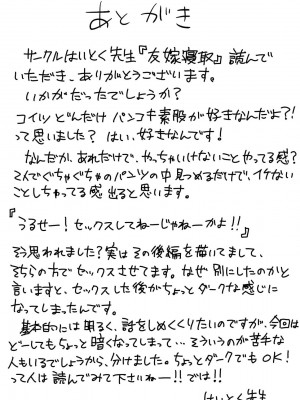 あとがき
サークルはいとく先生『友嫁寝取』読んで
いただき、ありがとうございます。
いかがだったでしょうか?
コイツどんだけパンコキ素股が好きなんだよ?!
って思いました? はい、好きなんです!
なんだか、あれだけで、やっちゃいけないことやってる感?
そんでぐちゃぐちゃのパンツの中見つめるだけで、イケない
ことしちゃってる感出ると思います。
『うるせー!セックスしてねーじゃねーかよ!!』
そう思われました?実はその後編を描いてまして、
そちらの方でセックスさせてます。なぜ別にしたのかと
言いますと、セックスした後がちょっとダークな感じに
なってしまったんです。
基本的には明るく、話をしめくくりたいのですが、今回は
どーしてもちょっと暗くなってしまって…そういうのが苦手な
人もいるでしょうから、分けました。ちょっとダークでもOK!
って人は読んでみて下さいねー!!では!!
はいとく先生